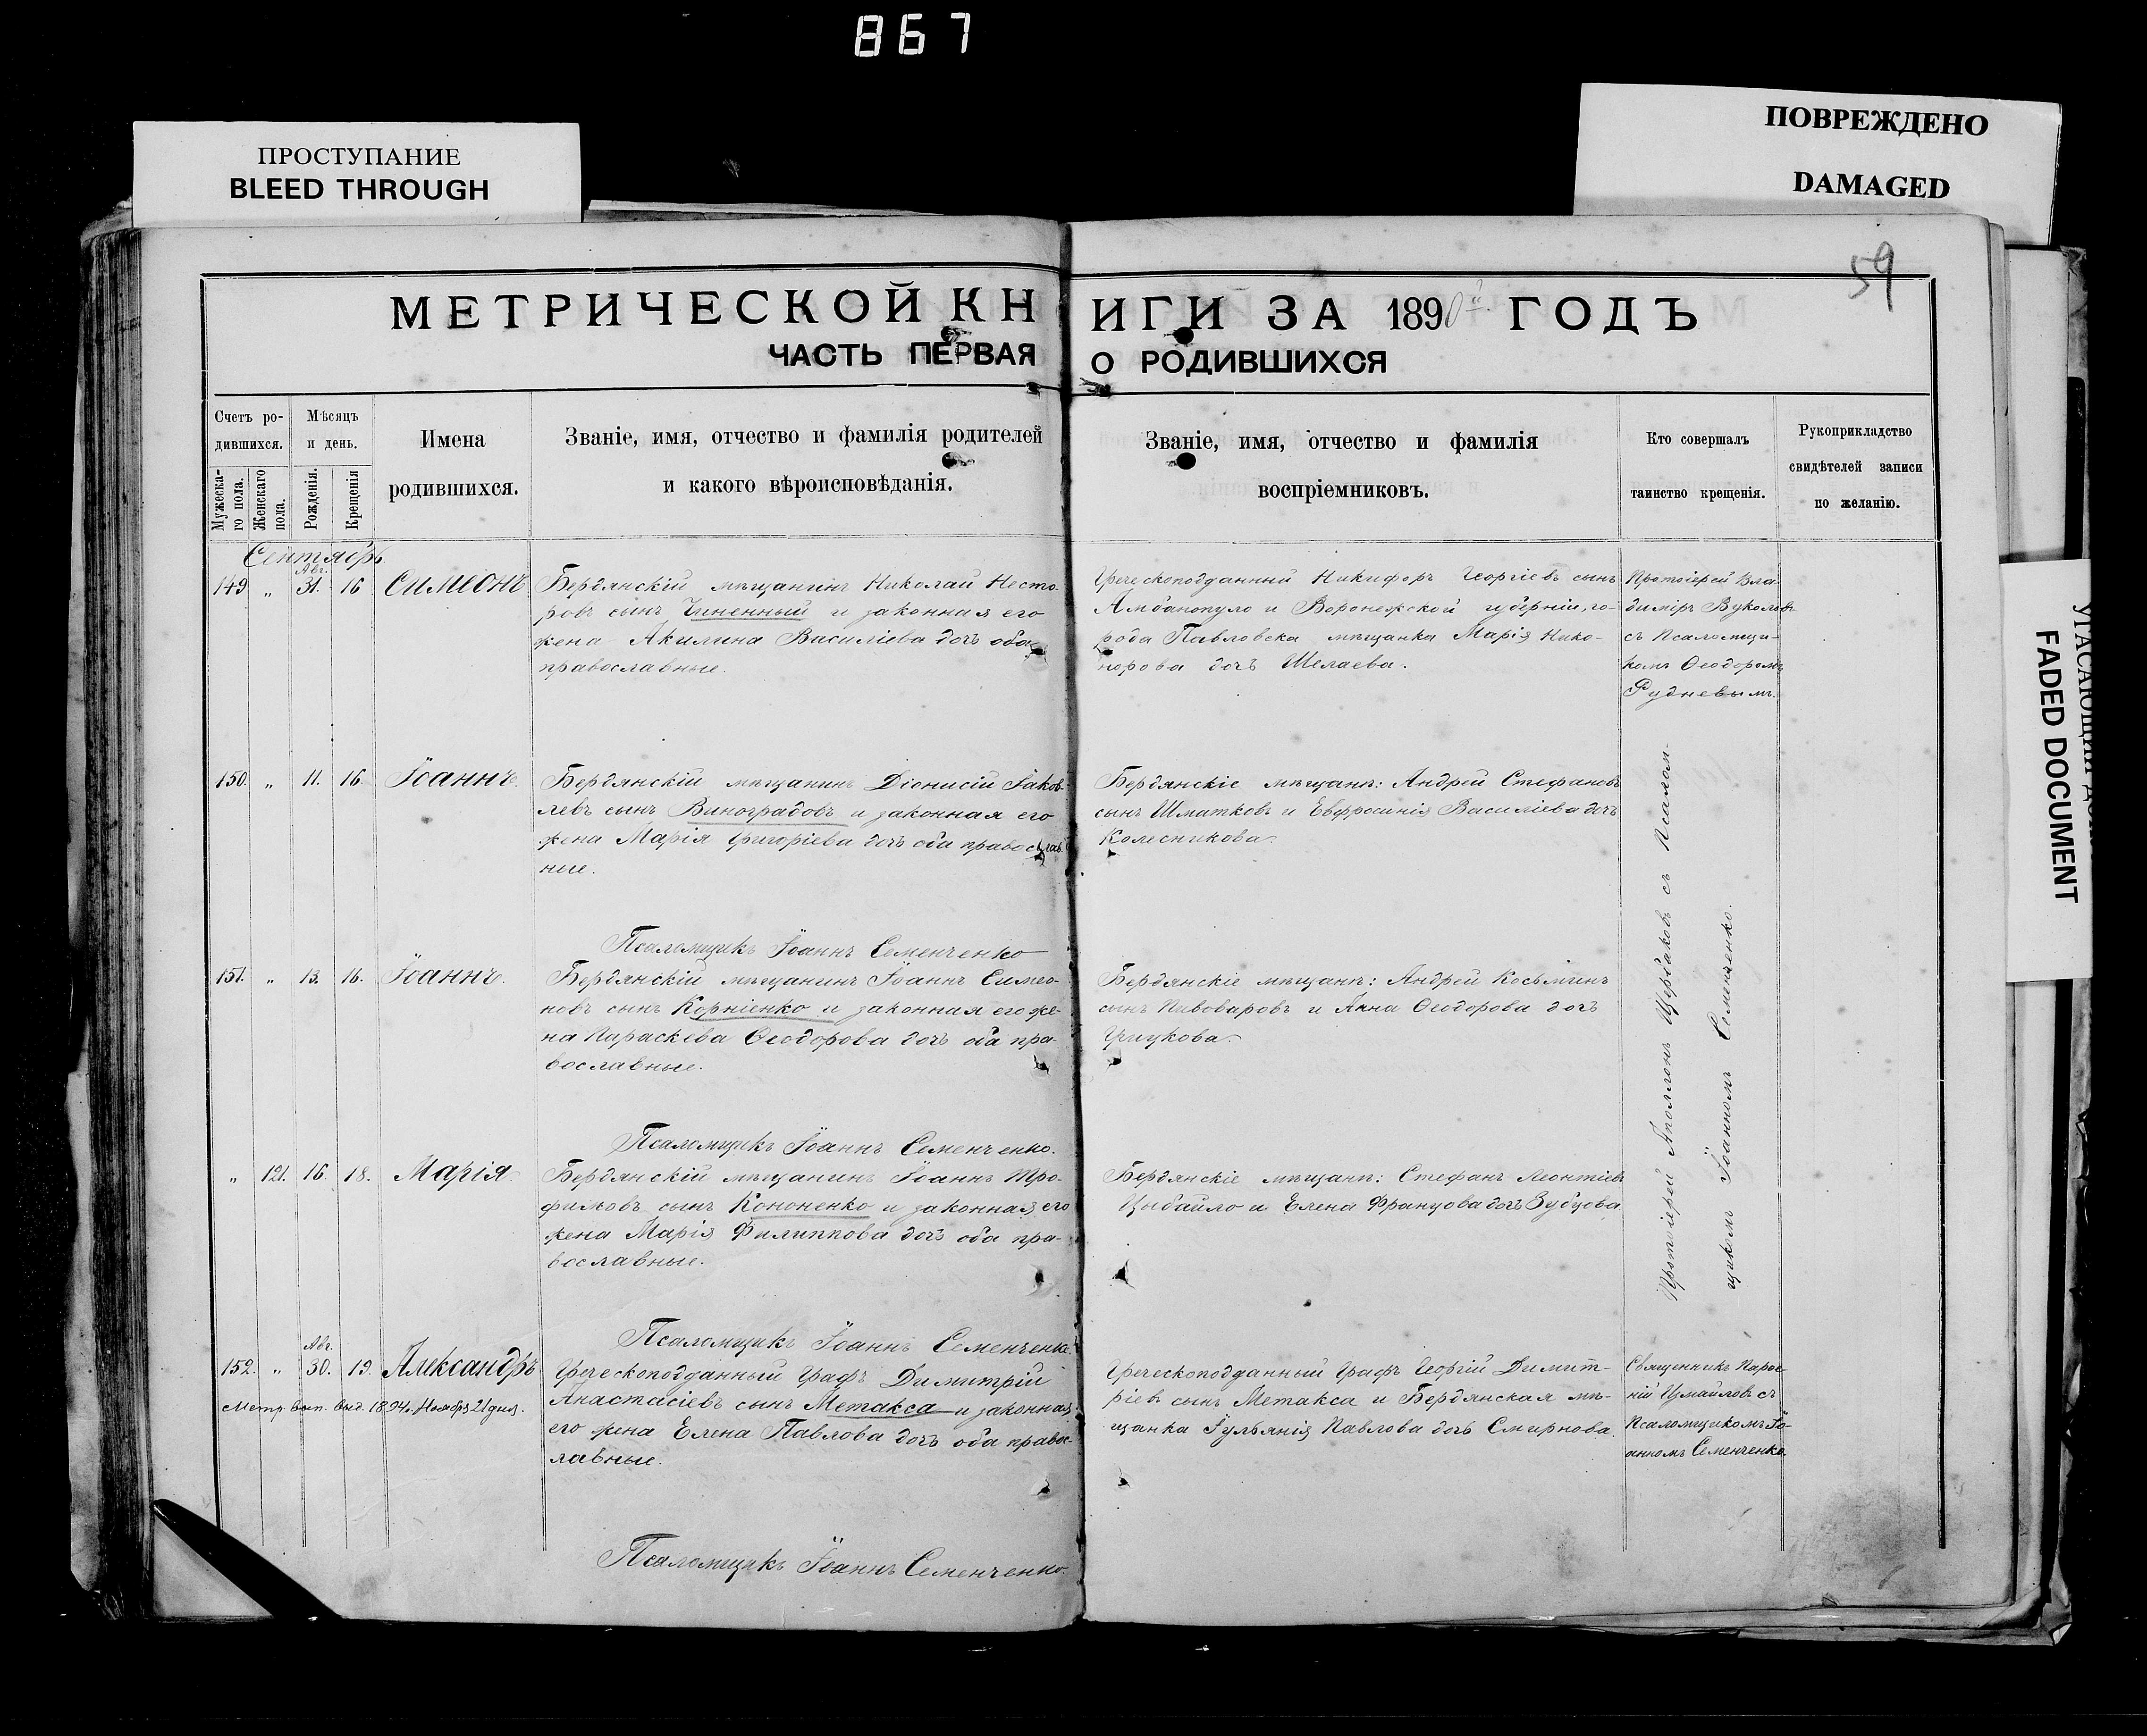 867
ПРОСТУПАНИЕ
BLEED THROUGH
ПОВРЕЖДЕНО
DAMAGED
59
МЕТРИЧЕСКОЙ КНИГИ ЗА 1890й ГОДЪ
ЧАСТЬ ПЕРВАЯ О РОДИВШИХСЯ
Счетъ ро-
дившихся.
Мужеска-
го пола.
Женскаго
пола.
Мѣсяцъ
и день.
Рожденія.
Крещенія
Имена
родившихся.
Званіе, имя, отчество и фамилія родителей
и какого вѣроисповѣданія.
Званіе, имя, отчество и фамилія
воспріемниковъ.
Кто совершалъ
таинство крещенія.
Рукоприкладство
свидѣтелей записи
по желанію.
Сентябрь
Авг.
149 „ 31. 16 Симеонъ
Бердянскій мѣщанинъ Николай Несто-
ровъ сынъ Чиненный и законная его
жена Акилина Василіева дочь оба
православные.
Греческоподданный Никифоръ Георгіевъ сынъ
Амбанопуло и Воронежской губерніи, го-
рода Павловска мѣщанка Марія Нико-
норова дочь Шелаева.
Протоіерей Вла-
димiръ Вуколовъ
съ Псаломщи-
комъ Ѳеодоромъ
Рудневымъ.
150. „ 11. 16 Іоаннъ.
Бердянскій мѣщанинъ Діонисій Іаков-
левъ сынъ Виноградовъ и законная его
жена Марія Григоріева дочь оба православ-
ные.
Бердянскіе мѣщане: Андрей Стефановъ
сынъ Шматковъ и Евфросинія Василіева дочь
Колесникова.
Протоіерей Аполлонъ Щербаковъ съ Псалом-
щикомъ Іоанномъ Семенченко.
Псаломщикъ Іоаннъ Семенченко
151. „ 13. 16. Іоаннъ.
Бердянскій мѣщанинъ Іоаннъ Симео-
новъ сынъ Корніенко и законная его же-
на Параскева Ѳеодорова дочь оба пра-
вославные.
Бердянскіе мѣщане: Андрей Косьминъ
сынъ Пивоваровъ и Анна Ѳеодорова дочь
Псаломщикъ Іоаннъ Семенченко.
„ 121. 16. 18. Марія
Бердянскій мѣщанинъ Іоаннъ Тро-
фимовъ сынъ Кононенко и законная его
жена Марія Филиппова дочь оба пра-
вославные.
Бердянскіе мѣщане: Стефанъ Леонтіевъ
Цыбайло и Елена Францова дочь Зубцова
Псаломщикъ Іоаннъ Семенченко
Авг.
152. „ 30. 19. Александръ
Метр. вып. выд. 1894 г. Ноября 21 дня.
Греческоподданный Графъ Димитрій
Анастасіевъ сынъ Метакса и законная
его жена Елена Павлова дочь оба правос-
лавные.
Греческоподданный Графъ Георгій Димит-
ріевъ сынъ Метакса и Бердянская мѣ-
щанка Іульянія Павлова дочь Смирнова.
Священникъ Парѳе-
ній Измайловъ съ
Псаломщикомъ Іо-
анномъ Семенченко.
Псаломщикъ Іоаннъ Семенченко
FADED DOCUMENT